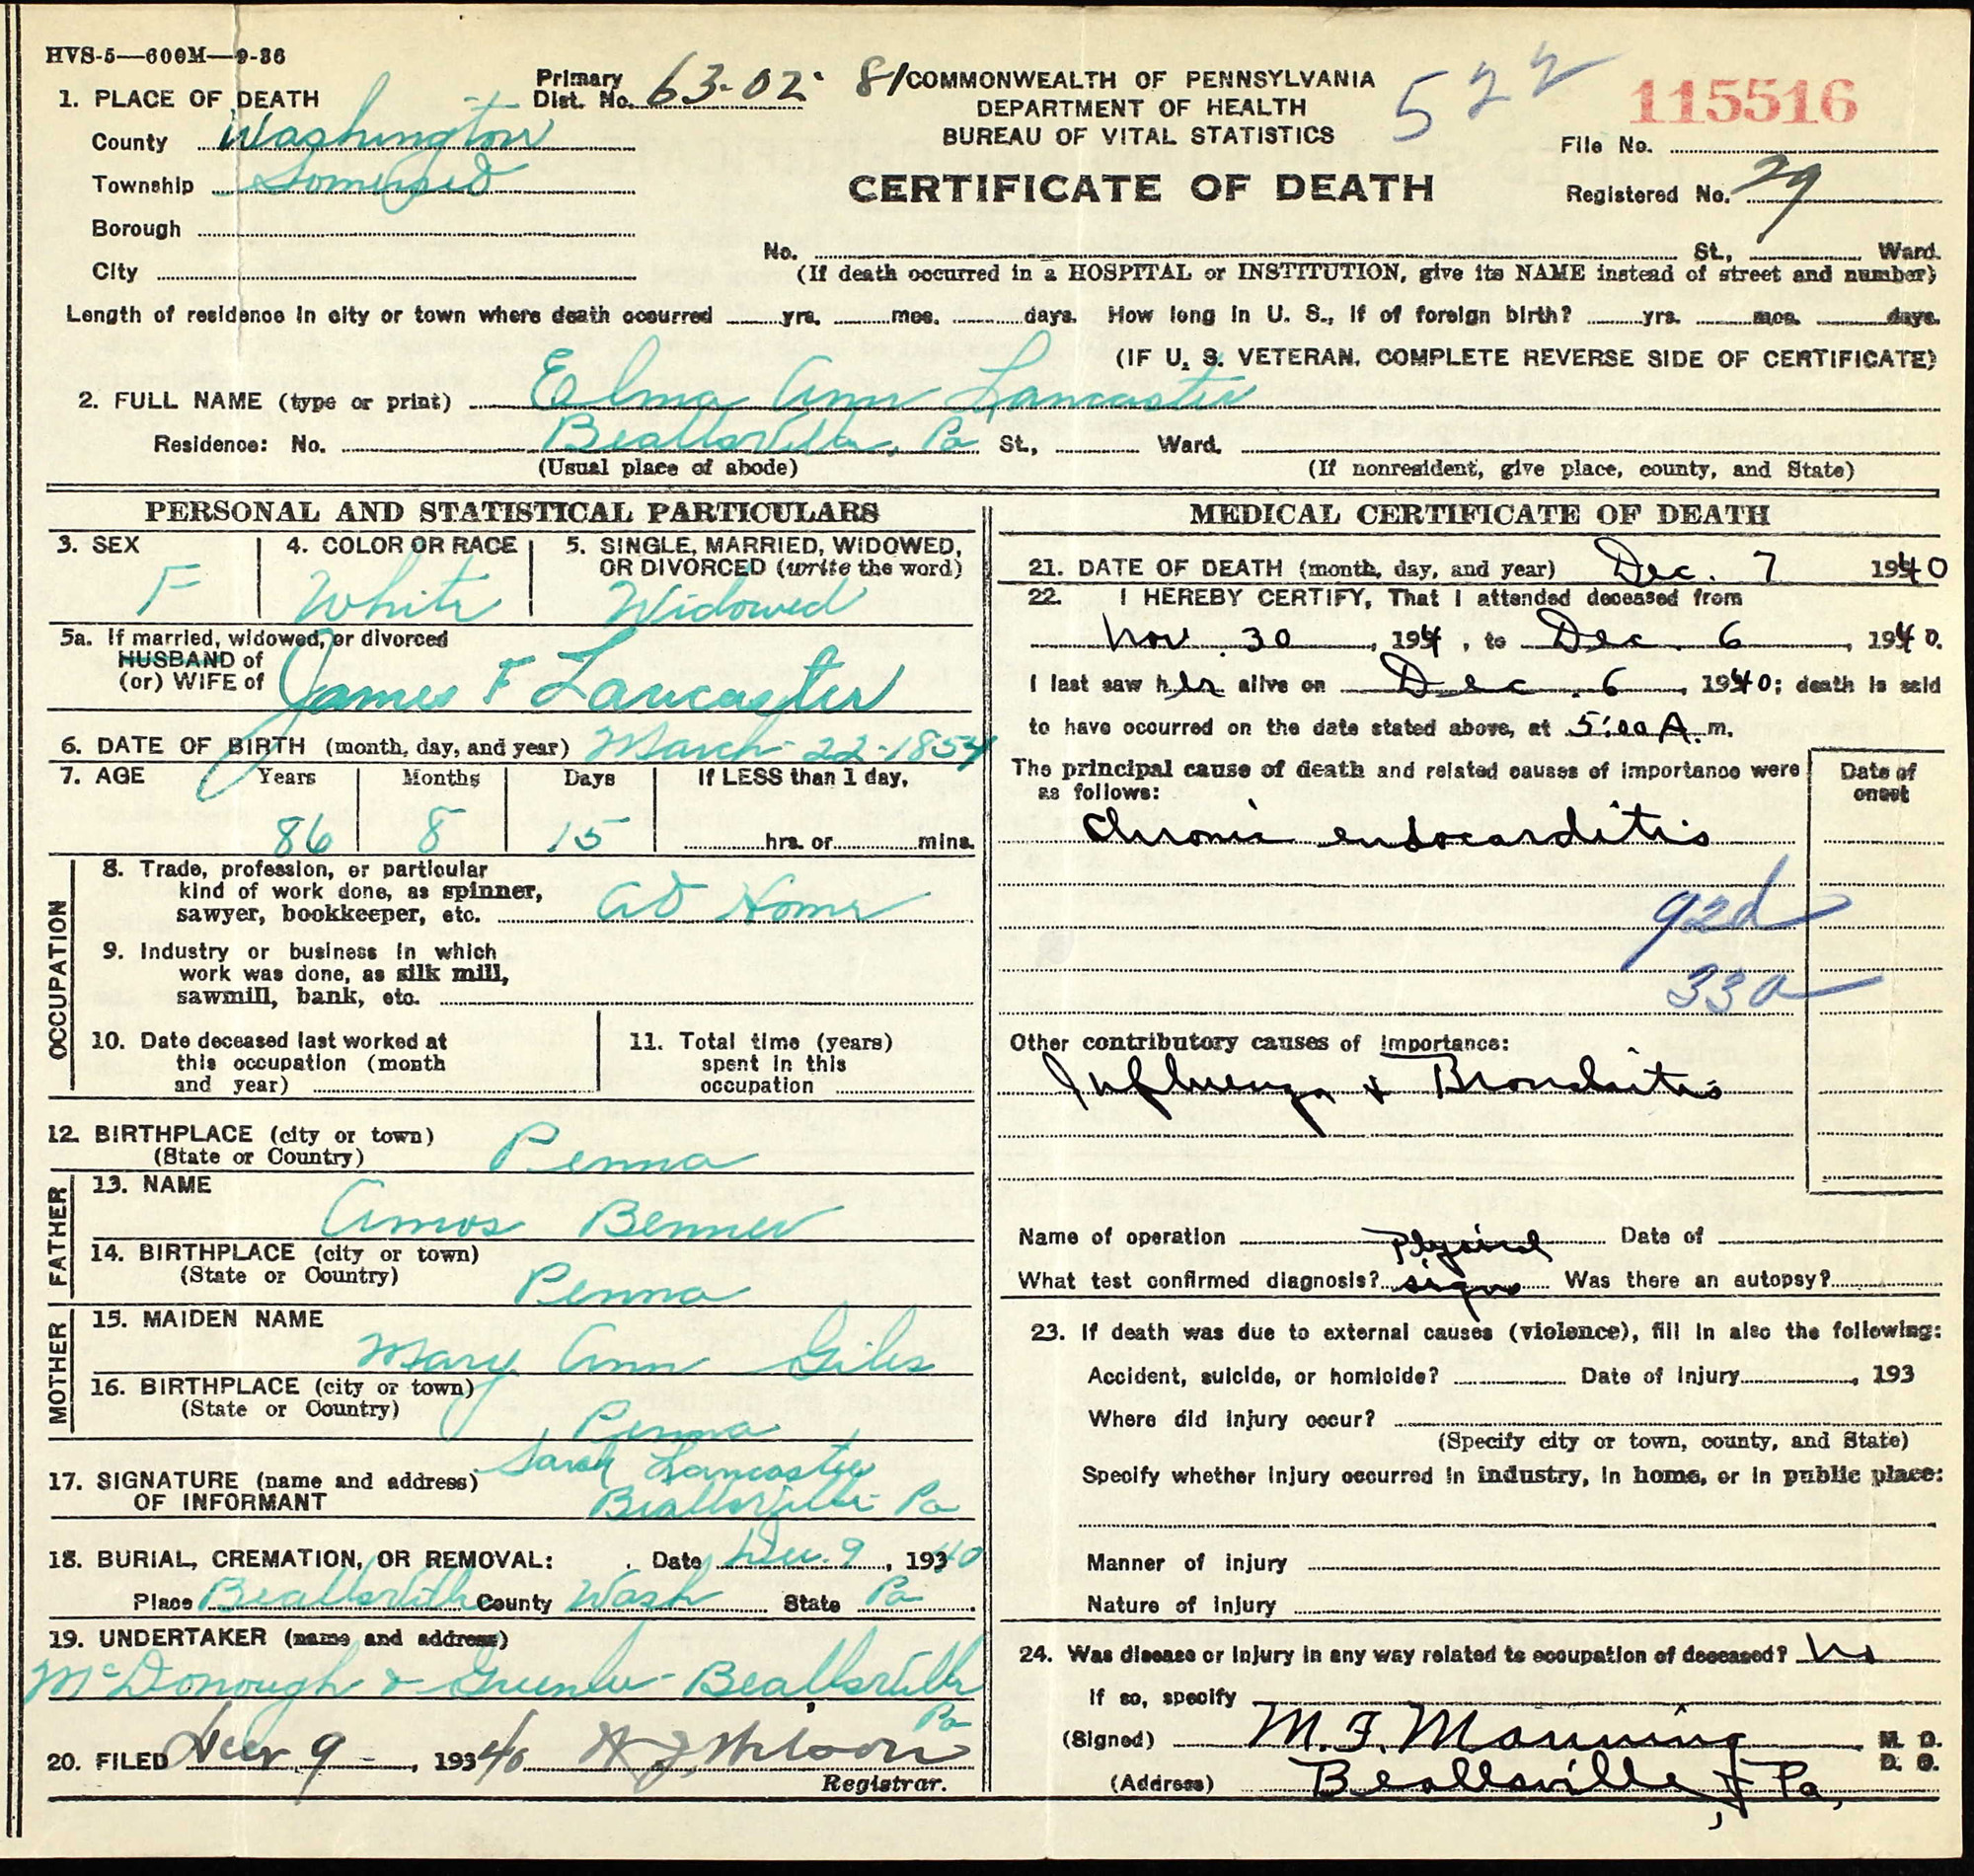 HVS-5—600M—9-36
Primary Dist. No. 63-02 81
COMMONWEALTH OF PENNSYLVANIA
DEPARTMENT OF HEALTH
BUREAU OF VITAL STATISTICS
CERTIFICATE OF DEATH
522
115516
File No.
Registered No. 29
1. PLACE OF DEATH
County Washington
Township Somerset
Borough
City
No. St., Ward.
(If death occurred in a HOSPITAL or INSTITUTION, give its NAME instead of street and number)
Length of residence in city or town where death occurred yrs. mos. days. How long in U. S., if of foreign birth? yrs. mos. days.
(IF U. S. VETERAN, COMPLETE REVERSE SIDE OF CERTIFICATE)
2. FULL NAME (type or print) Elma Ann Lancaster
Residence: No. Beallsville, Pa St., Ward.
(Usual place of abode) (If nonresident, give place, county, and State)
PERSONAL AND STATISTICAL PARTICULARS
3. SEX
F
4. COLOR OR RACE
White
5. SINGLE, MARRIED, WIDOWED,
OR DIVORCED (write the word)
Widowed
5a. If married, widowed, or divorced
HUSBAND of
(or) WIFE of James F Lancaster
6. DATE OF BIRTH (month, day, and year) March-22-1854
7. AGE Years Months Days If LESS than 1 day,
86 8 15 hrs. or mins.
OCCUPATION
8. Trade, profession, or particular
kind of work done, as spinner,
sawyer, bookkeeper, etc. At Home
9. Industry or business in which
work was done, as silk mill,
sawmill, bank, etc.
10. Date deceased last worked at
this occupation (month
and year)
11. Total time (years)
spent in this
occupation
12. BIRTHPLACE (city or town)
(State or Country) Penna
FATHER
13. NAME
Amos Benner
14. BIRTHPLACE (city or town)
(State or Country) Penna
MOTHER
15. MAIDEN NAME
Mary Ann Giles
16. BIRTHPLACE (city or town)
(State or Country) Penna
17. SIGNATURE (name and address) Sarah Lancaster
OF INFORMANT Beallsville Pa
18. BURIAL, CREMATION, OR REMOVAL: Date Dec. 9, 19340
Place Beallsville County Wash State Pa
19. UNDERTAKER (name and address)
McDonough & Greenlee - Beallsville
Pa
20. FILED Dec 9, 19340 Wilson
Registrar.
MEDICAL CERTIFICATE OF DEATH
21. DATE OF DEATH (month, day, and year) Dec. 7 1940
22. I HEREBY CERTIFY, That I attended deceased from
Nov. 30, 194, to Dec. 6, 1940.
I last saw her alive on Dec. 6, 1940; death is said
to have occurred on the date stated above, at 5:00 A. m.
The principal cause of death and related causes of importance were
as follows:
Date of
onset
Chronic endocarditis
92d
33a
Other contributory causes of importance:
Influenza & Bronchitis
Name of operation Date of
Physical
What test confirmed diagnosis? signs Was there an autopsy?
23. If death was due to external causes (violence), fill in also the following:
Accident, suicide, or homicide? Date of injury , 193
Where did injury occur?
(Specify city or town, county, and State)
Specify whether injury occurred in industry, in home, or in public place:
Manner of injury
Nature of injury
24. Was disease or injury in any way related to occupation of deceased? No
If so, specify
(Signed) M. F. Manning M. D.
D. O.
(Address) Beallsville, Pa,